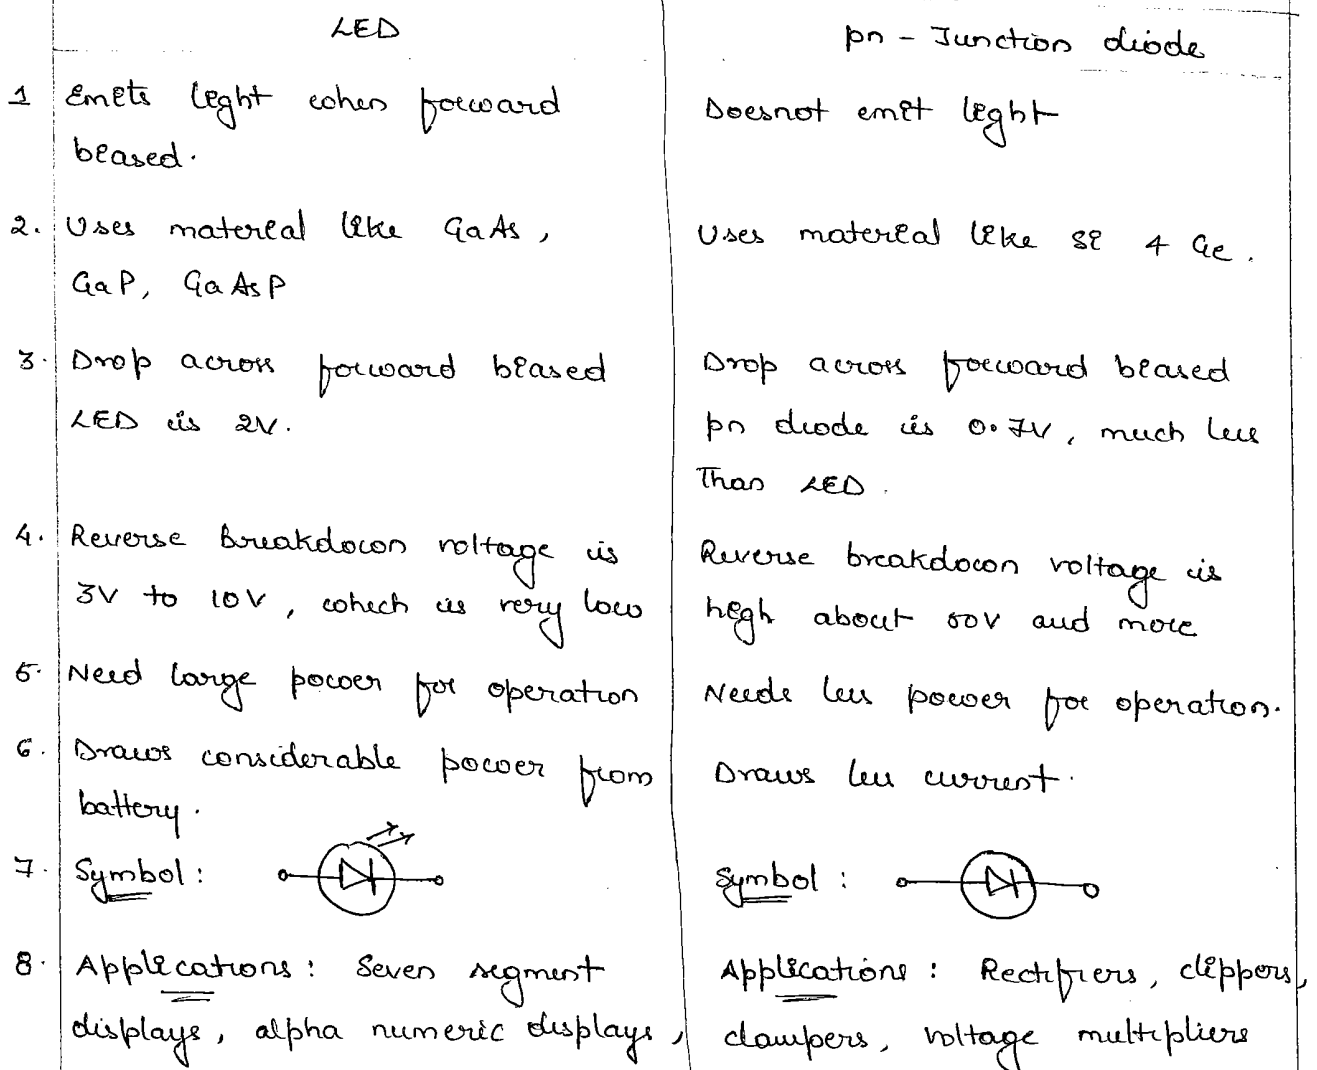 LED
pn - Junction diode
1 Emits light when forward
biased.
Doesnot emit light
2. Uses material like GaAs,
GaP, GaAsP
Uses material like Si & Ge.
3. Drop across forward biased
LED is 2V.
Drop across forward biased
pn diode is 0.7V, much less
Than LED.
4. Reverse breakdown voltage is
3V to 10V, which is very low
Reverse breakdown voltage is
high about 50V and more
5. Need large power for operation
Needs less power for operation.
6. Draws considerable power from
battery.
Draws less current.
7. Symbol :
Symbol :
8. Applications : Seven segment
displays, alpha numeric displays,
Applications : Rectifiers, clippers,
clampers, voltage multipliers